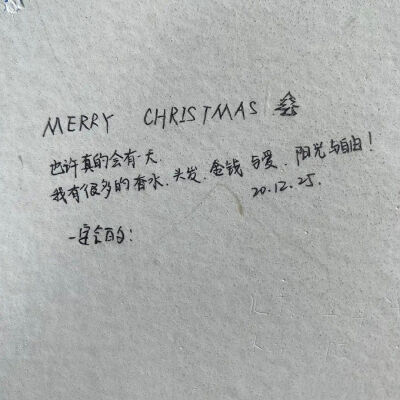 MERRY CHRISTMAS
也许真的会有一天.
我有很多的香水.头发.金钱与爱.阳光与自由!
20.12.25.
一定会的: